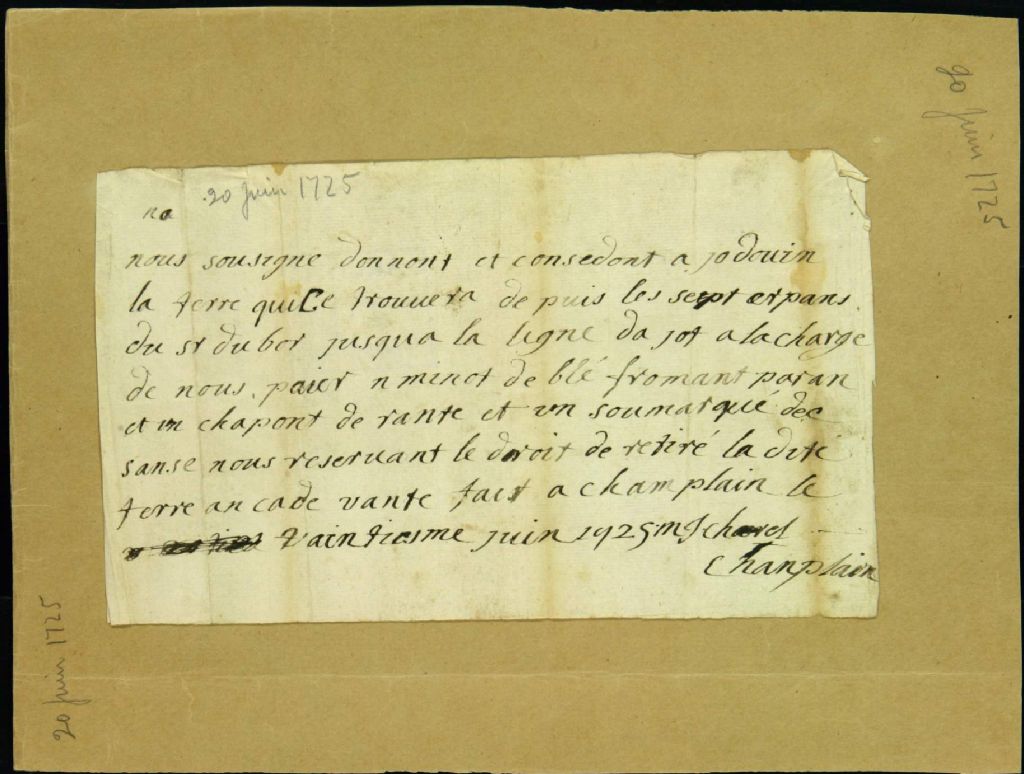 20 juin 1725
no
nous sousigne donnont et consedont a jodouin
la terre qui Ce trouvera de puis les sept erpans
du sr dubor jusqua la ligne da jot a la charge
de nous paier n minot de blé fromant par an
et un chapont de rante et un soumarqué dec
sanse nous reservant le droit de retiré la dite
terre an ca de vante fait a champlain le
vaintiesme juin 1925
Chanplain
20 juin 1725
20 juin 1725